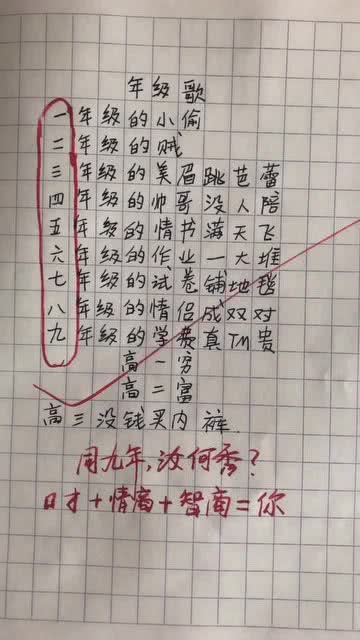 年级歌
一年级的小偷
二年级的贼
三年级的美眉跳芭蕾
四年级的帅哥没人陪
五年级的情书满天飞
六年级的作业一大堆
七年级的试卷铺地毯
八年级的情侣成双对
九年级的学费真TM贵
高一穷
高二富
高三没钱买内裤
用九年,汝何秀?
日才+情商+智商=你